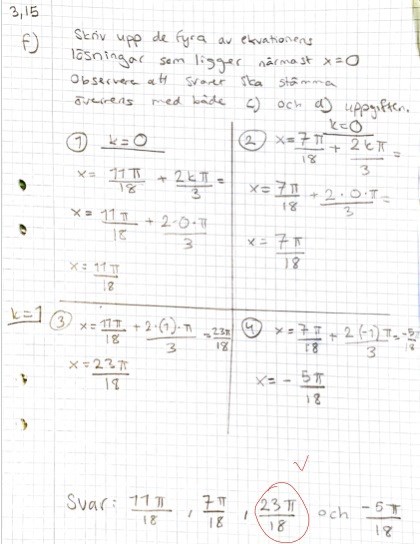 3,15
f) Skriv upp de fyra av ekvationens
lösningar som ligger närmast x=0
Observera att svaret ska stämma
överrens med både c) och d) uppgiften.
① k=0
x= 11π/18 + 2kπ/3 =
x= 11π/18 + 2·0·π/3
x= 11π/18
② k=0
x= 7π/18 + 2kπ/3 =
x= 7π/18 + 2·0·π/3 =
x= 7π/18
k=1
③ x= 11π/18 + 2·(1)·π/3 = 23π/18
x= 23π/18
④ x= 7π/18 + 2(-1)π/3 = -5π/18
x= - 5π/18
Svar: 11π/18 , 7π/18 , 23π/18 och -5π/18